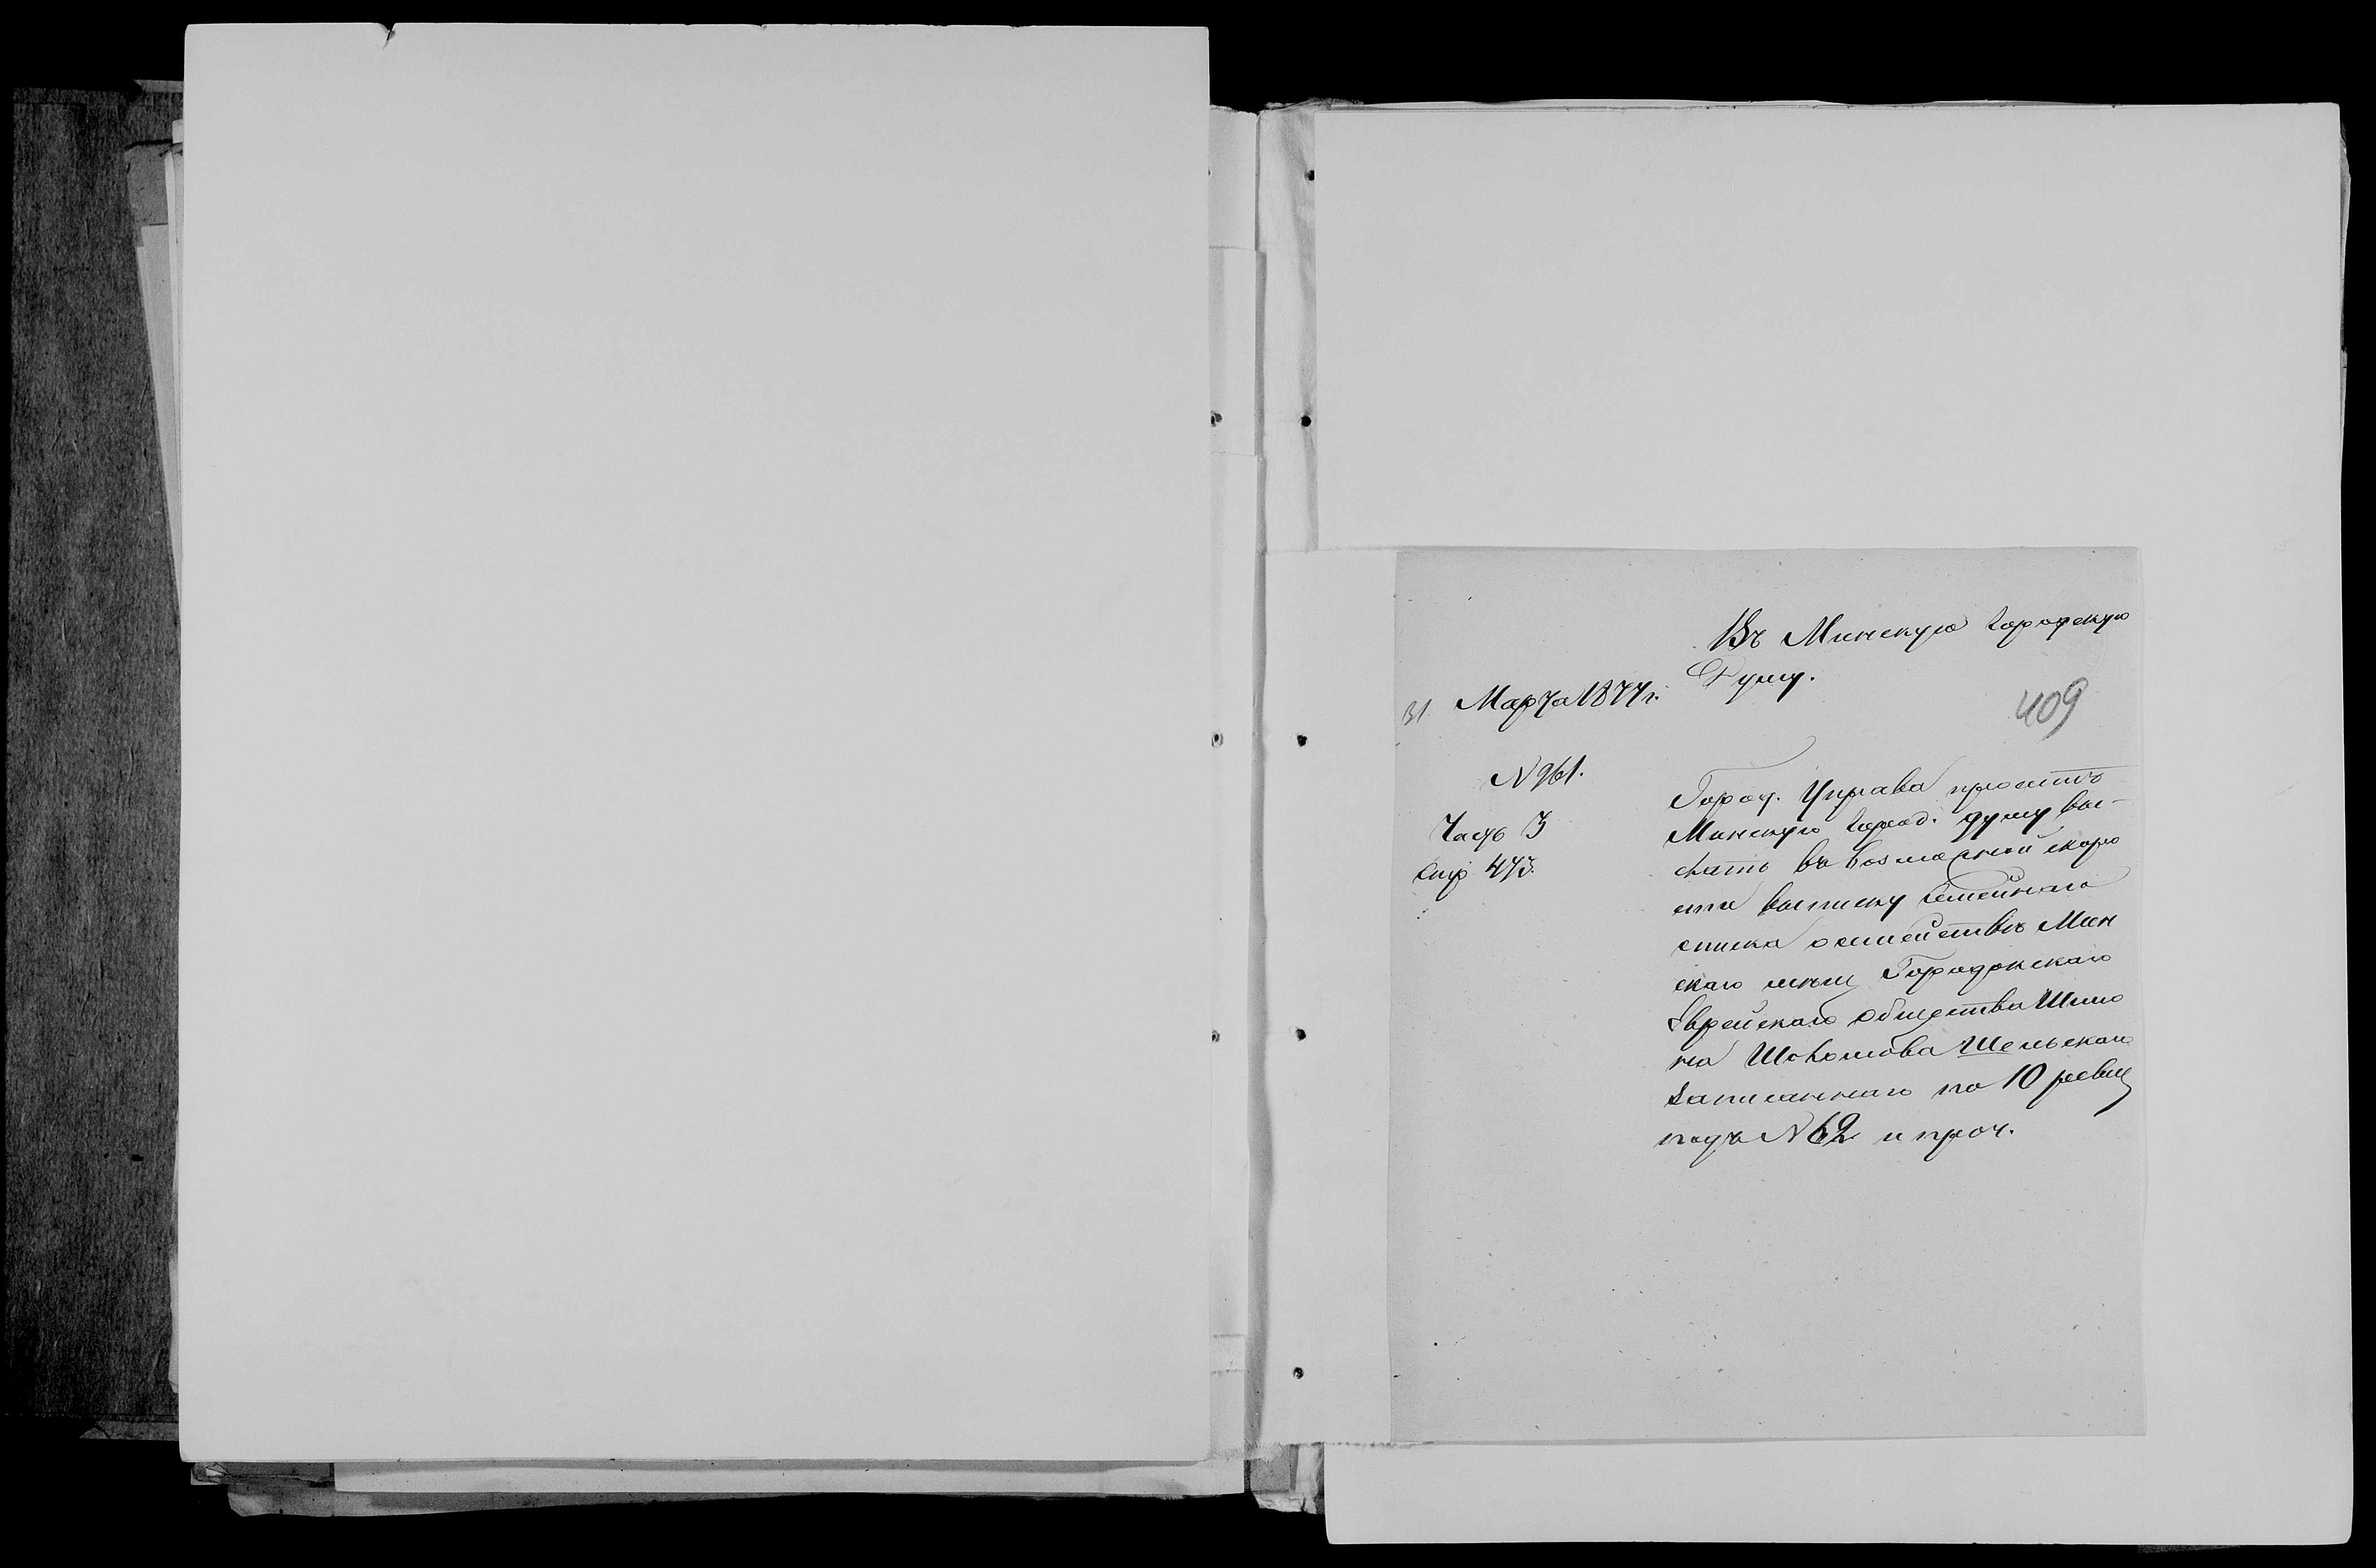 Въ Минскую Городскую
Думу.
409
31 Марта 1877 г.
N 961.
Часть 3
стр 473.
Город. Управа проситъ
Минскую город. думу вы-
слать въ возможной скоро
сти выписку семейнаго
списка о семействѣ Мин
скаго мѣщ Городокскаго
Еврейскаго Общества Шмо
на Шоломова
записаннаго по 10 ревиз
подъ N 62 и проч.